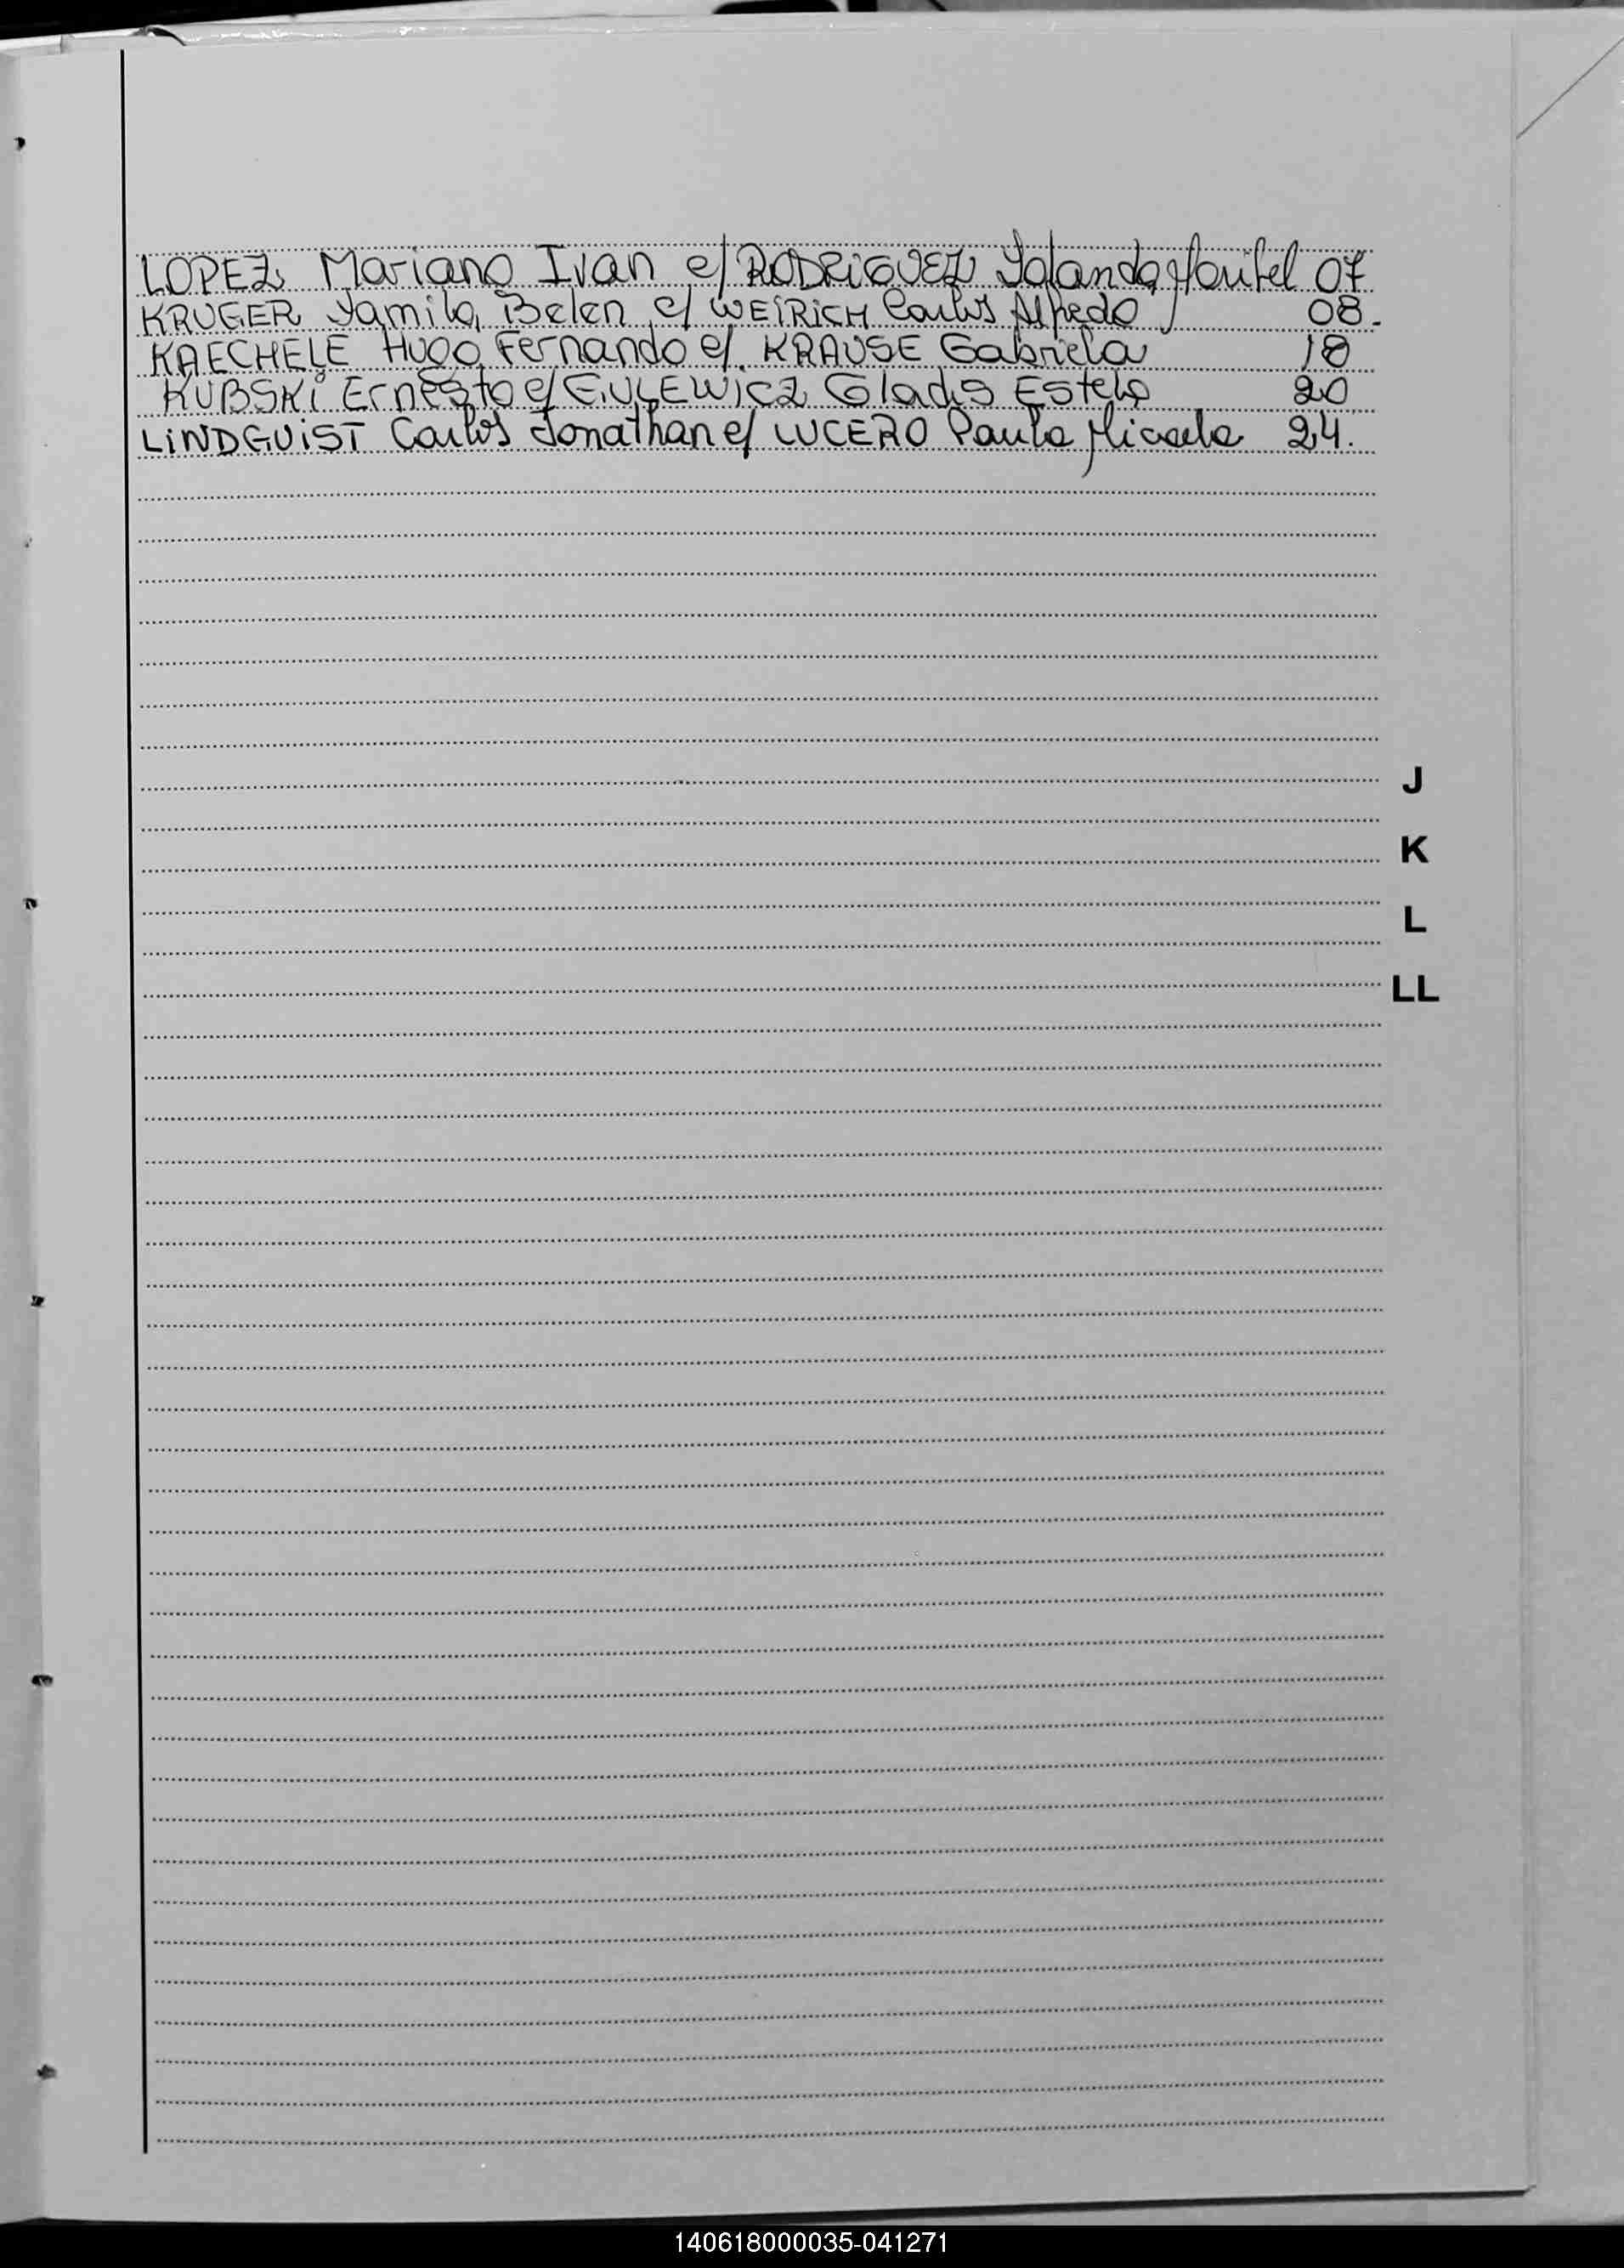 LOPEZ Mariano Ivan c/ RODRIGUEZ Yolanda Maribel 07
KRUGER Yamila Belen c/ WEIRICH Carlos Alfredo 08.
KAECHELE Hugo Fernando c/ KRAUSE Gabriela 18
KUBSKI Ernesto c/ GULEWICZ Gladis Estela 20
LINDGUIST Carlos Jonathan c/ LUCERO Paula Micaela 24.
J
K
L
LL
140618000035-041271